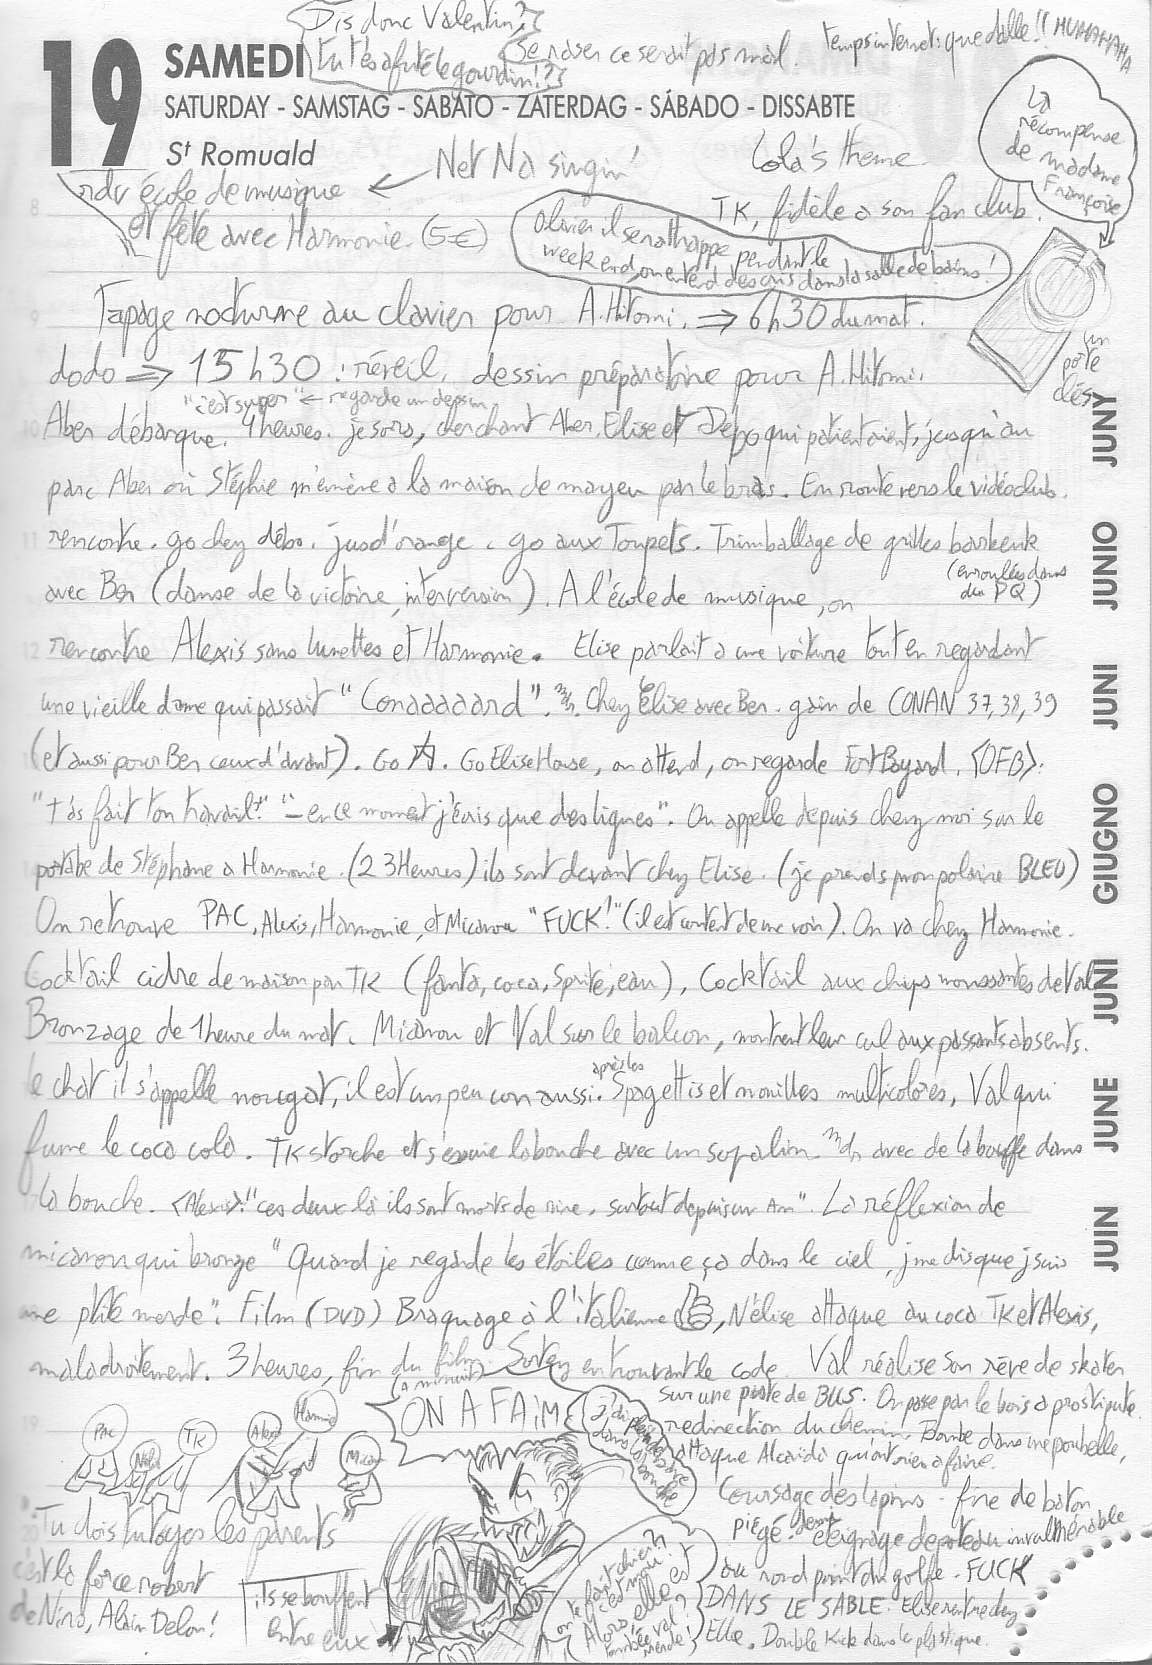 Dis donc Valentin?
tu t'es afuté le gourdin!?
Se raser ce serait pas mal.
temps internet: que dalle!! MUHAHAHA
19
SAMEDI
SATURDAY - SAMSTAG - SABATO - ZATERDAG - SÁBADO - DISSABTE
St Romuald
Net Na singin'
Lola's theme
La
récompense
de madame
Françoise
rdv école de musique
et fête avec Harmonie. (5€)
TK, fidèle à son fan club.
Olivier il se rathappe pendant le
week end, on entend des cris dans la salle de bains!
8
Tapage nocturne au clavier pour A.Hitomi. ⇒ 6h30 du mat.
9
un
porte
clés
dodo ⇒ 15h30 : réveil, dessin préparatoire pour A.Hitomi.
"c'est super" ← regarde un dessin
Aber débarque. 4heures. je sors, cherchant Aber, Elise et Debo qui patientaient, jusqu'au
10
parc Aber où Stéphie m'emène à la maison de mayeu par le bras. En route vers le vidéoclub.
rencontre. go chez débo. jus d'orange. go aux Toupets. Trimballage de grilles barbeuk
11
(enroulées dans
du PQ)
avec Ben (danse de la victoire, interversion). A l'école de musique, on
rencontre Alexis sans lunettes et Harmonie. Elise parlait a une voiture tout en regardant
12
une vieille dame qui passait "Conaaaaard". Chez Elise avec Ben. gain de CONAN 37, 38, 39
(et aussi pour Ben ceux d'avant). Go A. Go Elise House, on attend, on regarde Fort Boyard. <OFB>:
"t'as fait ton travail?" "– en ce moment j'écris que des lignes". On appelle depuis chez moi sur le
portabe de Stéphane a Harmonie. (23Heures) ils sont devant chez Elise. (je prends mon polaire BLEU)
On retrouve PAC, Alexis, Harmonie, et Micanou "FUCK!" (il est content de me voir). On va chez Harmonie.
Cocktail cidre de maison par TK (fanta, coca, Sprite, eau), Cocktail aux chips moussantes de Val
Bronzage de 1heure du mat. Micanou et Val sur le balcon, montrent leur cul aux passants absents.
le chat il s'appelle nougat, il est un peu con aussi. après les Spagettis et nouilles multicolores, Val qui
fume le coca cola. TK storche et s'essuie la bouche avec un sopalin avec de la bouffe dans
la bouche. <Alexis>: "ces deux là ils sont morts de rire, surtout depuis un an". La réflexion de
micanou qui bronze "Quand je regarde les étoiles comme ça dans le ciel, j'me dis que j'suis
une ptite merde". Film (DVD) Braquage à l'italienne, N'élise attaque au coca TK et Alexis,
maladroitement. 3heures, fin du film. Sortez en trouvant le code. Val réalise son rêve de skater
sur une piste de BUS. On passe par le bois a prostipute.
redirection du chemin. Bombe dans une poubelle,
attaque Alcaïda qu'ont rien a faire.
Coursage des lapins. fire de baton
piégé. éteignage de poteau invulnérable
au rond point du golfe. FUCK
DANS LE SABLE. Elise rentre chez
Elle. Double Kick dans le plastique.
PAC
TK
Alexis
Harmie
Mican
(a minuit)
ON A FAIM
"Tu dois tutoyer les parents"
c'est la force robert
de Niro, Alain Delon!
ils se bouffent
entre eux
JUIN JUNE JUNI GIUGNO JUNI JUNIO JUNY